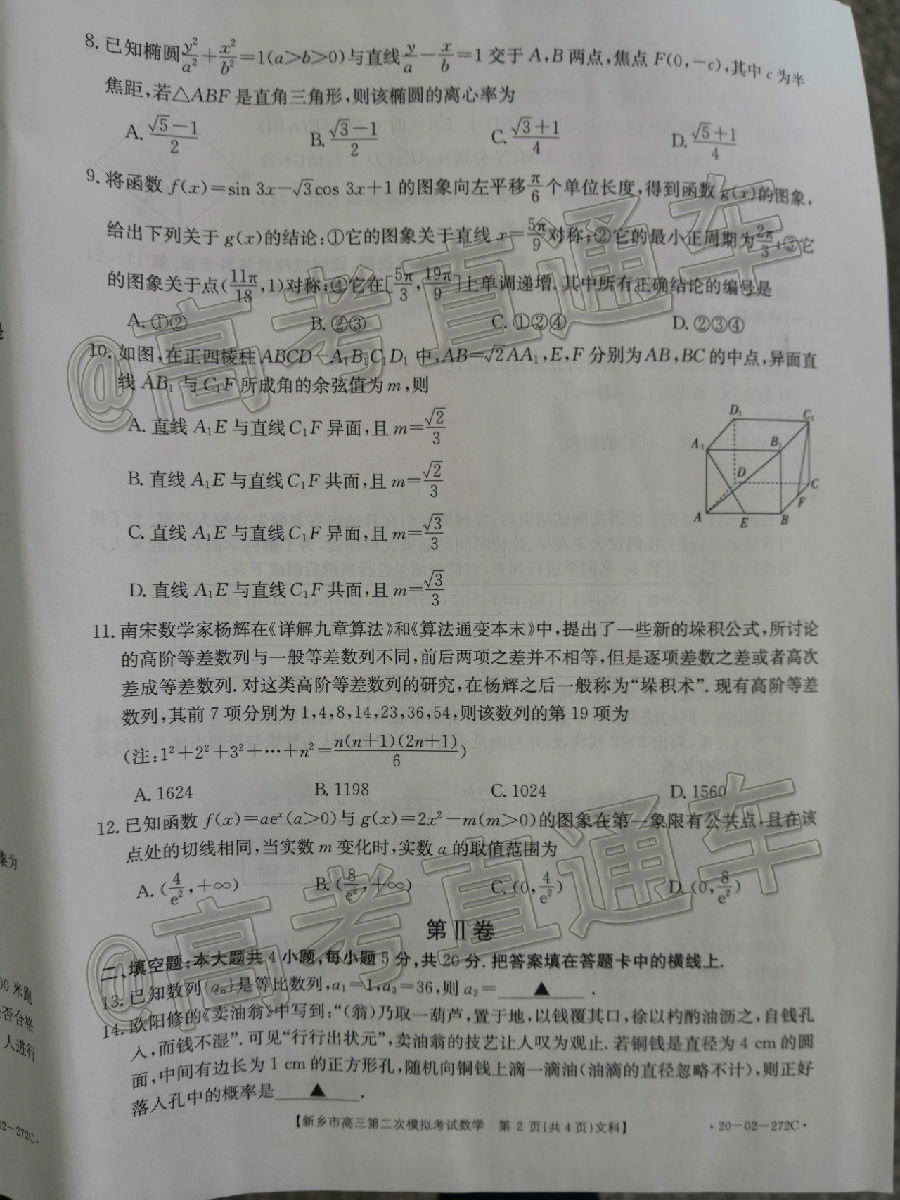 8. 已知椭圆y²/a²+x²/b²=1(a>b>0)与直线y/a−x/b=1交于A,B两点,焦点F(0,−c),其中c为半
焦距,若△ABF是直角三角形,则该椭圆的离心率为
A. (√5−1)/2 B. (√3−1)/2 C. (√3+1)/4 D. (√5+1)/4
9. 将函数 f(x)=sin 3x−√3cos 3x+1的图象向左平移π/6个单位长度,得到函数g(x)的图象,
给出下列关于g(x)的结论:①它的图象关于直线x=5π/9对称;②它的最小正周期为2π/3;③它
的图象关于点(11π/18,1)对称;④它在[5π/3,19π/9]上单调递增.其中所有正确结论的编号是
A. ①② B. ②③ C. ①②④ D. ②③④
10. 如图,在正四棱柱ABCD−A₁B₁C₁D₁中,AB=√2AA₁,E,F分别为AB,BC的中点,异面直
线AB₁与C₁F所成角的余弦值为m,则
A. 直线A₁E与直线C₁F异面,且m=√2/3
B. 直线A₁E与直线C₁F共面,且m=√2/3
C. 直线A₁E与直线C₁F异面,且m=√3/3
D. 直线A₁E与直线C₁F共面,且m=√3/3
D₁ C₁
A₁ B₁
D C
F
A E B
11. 南宋数学家杨辉在《详解九章算法》和《算法通变本末》中,提出了一些新的垛积公式,所讨论
的高阶等差数列与一般等差数列不同,前后两项之差并不相等,但是逐项差数之差或者高次
差成等差数列.对这类高阶等差数列的研究,在杨辉之后一般称为“垛积术”.现有高阶等差
数列,其前7项分别为1,4,8,14,23,36,54,则该数列的第19项为
(注:1²+2²+3²+…+n²=n(n+1)(2n+1)/6)
A. 1624 B. 1198 C. 1024 D. 1560
12. 已知函数f(x)=aeˣ(a>0)与g(x)=2x²−m(m>0)的图象在第一象限有公共点,且在该
点处的切线相同,当实数m变化时,实数a的取值范围为
A. (4/e²,+∞) B. (8/e²,+∞) C. (0,4/e²) D. (0,8/e²)
第Ⅱ卷
二、填空题:本大题共4小题,每小题5分,共20分.把答案填在答题卡中的横线上.
13. 已知数列{aₙ}是等比数列,a₁=1,a₃=36,则a₂=▲.
14. 欧阳修的《卖油翁》中写到:“(翁)乃取一葫芦,置于地,以钱覆其口,徐以杓酌油沥之,自钱孔
入,而钱不湿”.可见“行行出状元”,卖油翁的技艺让人叹为观止.若铜钱是直径为4 cm的圆
面,中间有边长为1 cm的正方形孔,随机向铜钱上滴一滴油(油滴的直径忽略不计),则正好
落入孔中的概率是▲.
【新乡市高三第二次模拟考试数学 第2页(共4页)文科】 ·20−02−272C·
@高考直通车
@高考直通车
集为
00米跑
是否合格
人进行
02−272C·